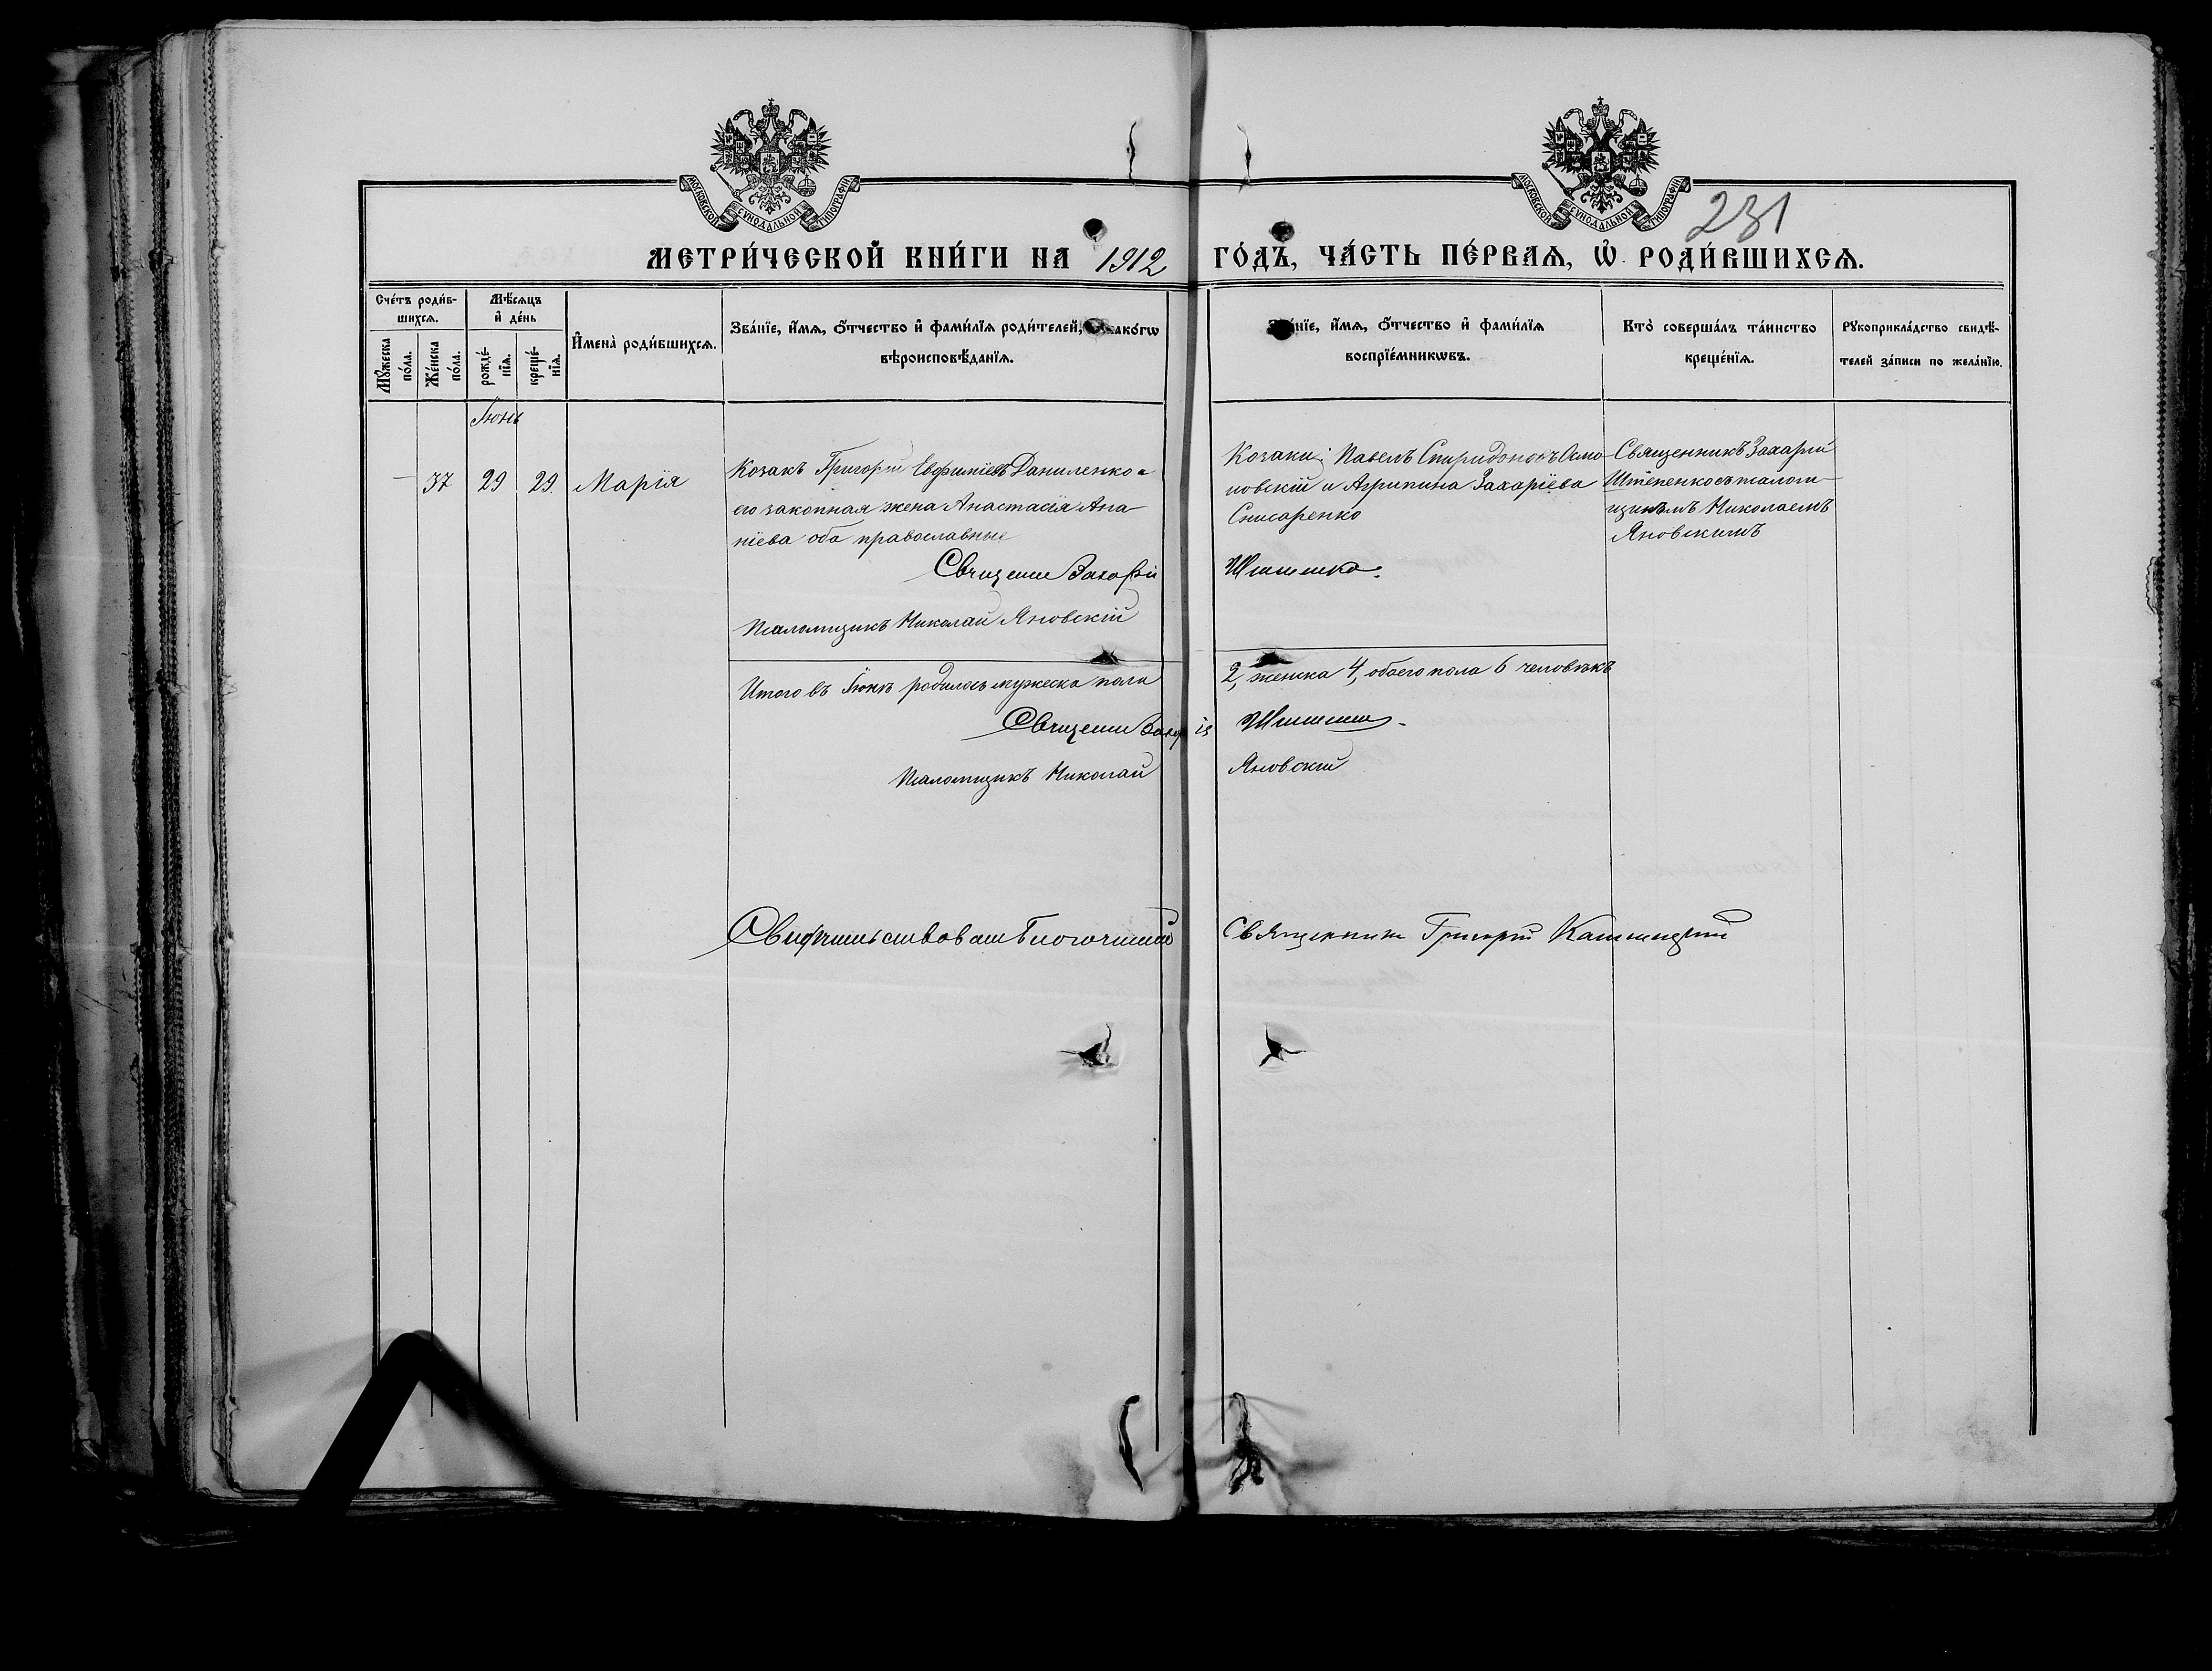 МОСКОВСКОЙ СѴНОДАЛЬНОЙ ТИПОГРАФІИ
МОСКОВСКОЙ СѴНОДАЛЬНОЙ ТИПОГРАФІИ
231
МЕТРИ́ЧЕСКОЙ КНИ́ГИ НА 1912 ГО́ДЪ, ЧА́СТЬ ПЕ́РВАѦ, Ѡ҆ РОДИ́ВШИХСѦ.
Сче́тъ роди́в-
шихсѧ.
Мꙋ́жеска
по́ла.
Же́нска
по́ла.
Мѣ́сѧцъ
и҆ де́нь
рожде́-
нїѧ.
креще́-
нїѧ.
И҆мена̀ роди́вшихсѧ.
Зва́нїе, и҆́мѧ, ѻ҆́тчество и҆ фами́лїѧ роди́телей, и҆ како́гѡ
вѣроисповѣ́данїѧ.
Зва́нїе, и҆́мѧ, ѻ҆́тчество и҆ фами́лїѧ
воспрїе́мникѡвъ.
Кто̀ соверша́лъ та́инство
креще́нїѧ.
Рꙋкоприкла́дство свидѣ́-
телей за́писи по жела́нїю.
Іюнь
— 37 29 29. Марія
Козакъ Григорій Евфиміевъ Даниленко и
его законная жена Анастасія Ана-
ніева оба православные
Козаки: Павелъ Спиридоновъ Осмо-
ловскій и Агрипина Захаріева
Снисаренко
Священникъ Захарій
Штепенко съ псалом-
щикомъ Николаемъ
Яновскимъ
Священ Захарій
Псаломщикъ Николай Яновскій
Итого въ Іюнѣ родилось мужеска пола 2, женска 4, обоего пола 6 человѣкъ
Священ Захарій
Псаломщикъ Николай Яновскій
Свидѣтельствовалъ Благочинный Священникъ Григорій